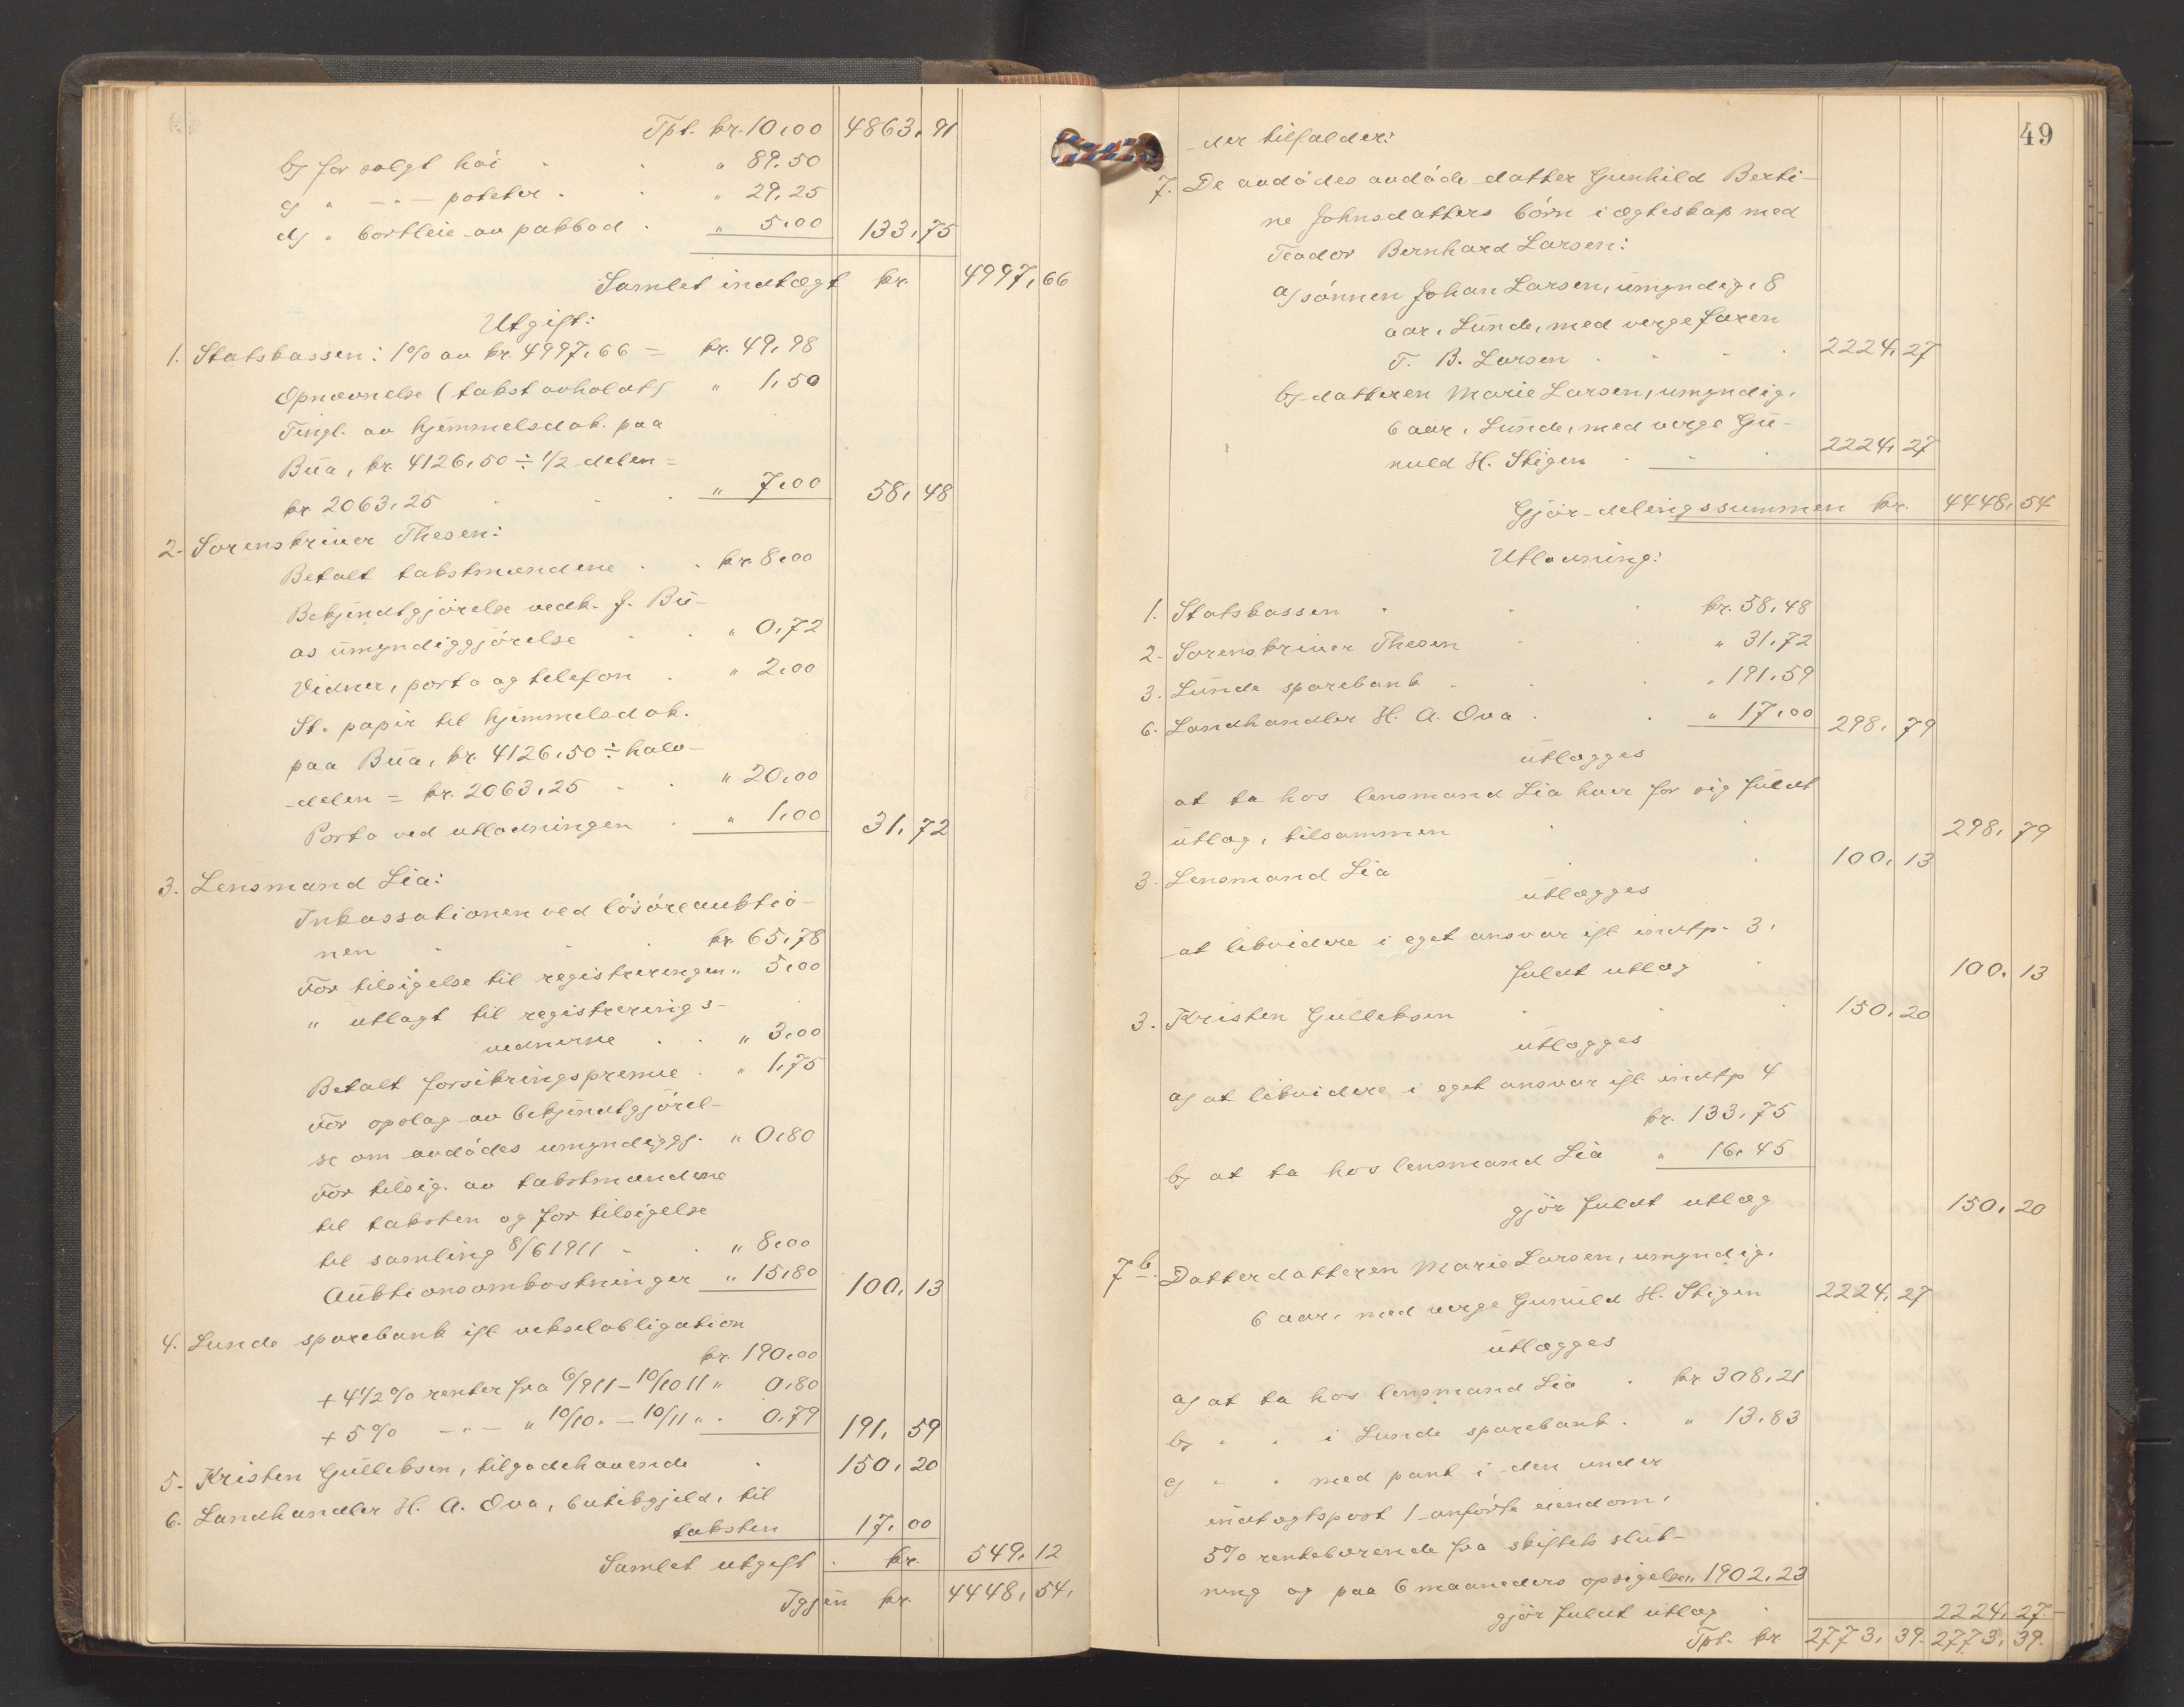 Tpt. kr. 10,00 4863, 91
b) for solgt høi " 89.50
c) " —"— poteter " 29,25
d) " bortleie av pakbod " 5,00 133,75
Samlet indtægt kr. 4997,66
Utgift:
1. Statskassen: 1% av kr. 4997,66 = kr. 49,98
Opnævnelse (takst avholdt) " 1,50
Tingl. av hjemmelsdok. paa
Bua, kr. 4126,50 ÷ 1/2 delen =
kr 2063,25 " 7,00 58,48
2. Sorenskriver Thesen:
Betalt takstmændene kr. 8,00
Bekjendtgjörelse vedk. J. Bu-
as umyndiggjörelse " 0,72
Vidner, porto og telefon " 2,00
St. papir til hjemmelsdok.
paa Bua, kr. 4126,50 ÷ halv-
delen = kr. 2063,25 " 20,00
Porto ved utlodningen " 1,00 31,72
3. Lensmand Lia:
Inkassationen ved lösöreauktio-
nen kr. 65,78
For tilsigelse til registreringen " 5,00
" utlagt til registrerings-
vidnerne " 3,00
Betalt forsikringspremie " 1,75
For opslag av bekjendtgjörel-
se om avdödes umyndiggj. " 0,80
For tilsig. av takstmændene
til taksten og for tilsigelse
til samling 8/6 1911 " 8,00
Auktionsomkostninger " 15,80 100,13
4. Lunde sparebank ifl. vekselobligation
kr. 190,00
+ 4 1/2 % renter fra 6/9 11 – 10/10 11 " 0,80
+ 5 % —"— " 10/10. – 10/11 " 0,79 191,59
5. Kristen Gulleksen, tilgodehavende 150,20
6. Landhandler H. A. Ova, butikgjeld, til
taksten 17,00
Samlet utgift kr. 549,12
Igjen kr. 4448,54,
49
der tilfalder:
7. De avdödes avdöde datter Gunhild Berti-
ne Johnsdatters börn i ægteskap med
Teodor Bernhard Larsen:
a) sönnen Johan Larsen, umyndig, 8
aar, Lunde, med verge faren
T. B. Larsen 2224,27
b) datteren Marie Larsen, umyndig,
6 aar, Lunde, med verge Gu-
nuld H. Stigen 2224,27
Gjör delingssummen kr. 4448,54
Utlodning:
1. Statskassen kr. 58,48
2. Sorenskriver Thesen " 31,72
3. Lunde sparebank " 191,59
6. Landhandler H. A. Ova " 17,00 298,79
utlægges
at ta hos lensmand Lia hver for sig fuldt
utlæg, tilsammen 298,79
3. Lensmand Lia 100,13
utlægges
at likvidere i eget ansvar ifl. indtp. 3,
fuldt utlæg 100,13
3. Kristen Gulleksen 150,20
utlægges
a) at likvidere i eget ansvar ifl. indtp 4
kr. 133,75
b) at ta hos lensmand Lia " 16,45
gjör fuldt utlæg 150,20
7 b. Datterdatteren Marie Larsen, umyndig,
6 aar, med verge Gunuld H. Stigen 2224,27
utlægges
a) at ta hos lensmand Lia kr 308,21
b) " " i Lunde sparebank " 13,83
c) " " med pant i den under
indtægtspost 1 anförte eiendom,
5% rentebærende fra skiftets slut-
ning og paa 6 maaneders opsigelse " 1902,23
gjör fuldt utlæg 2224,27.
Tpt. kr 2773,39. 2773,39.